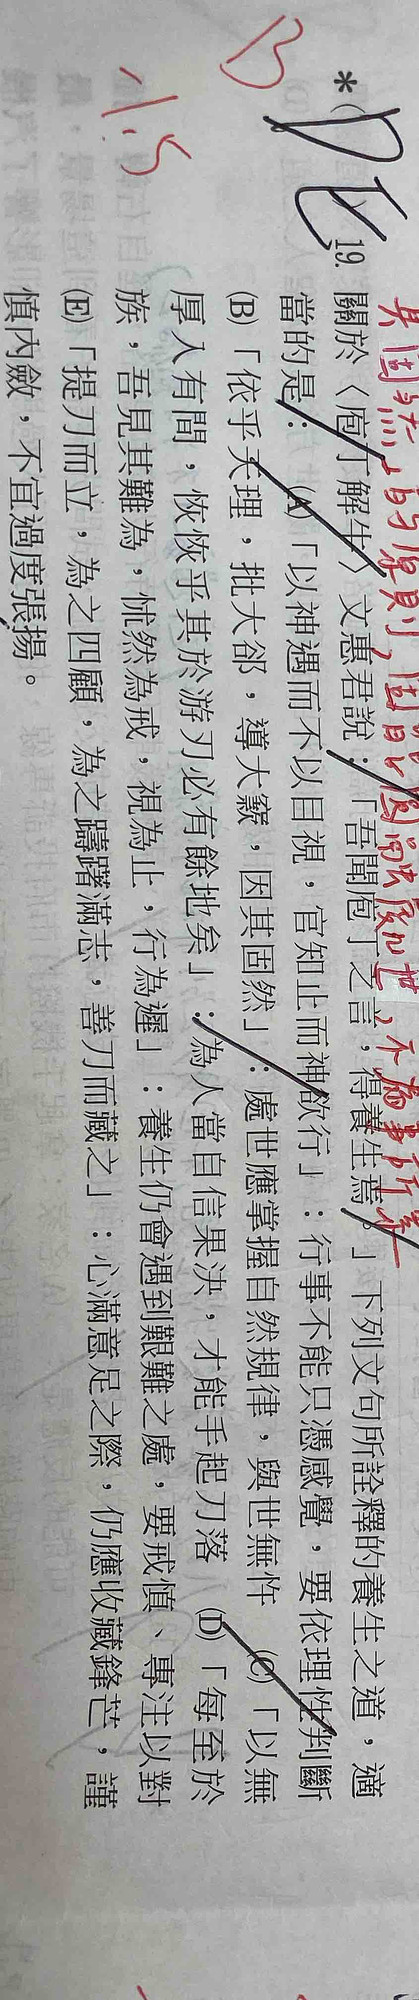 其固然」的原則，因
B
-1.5
*( DE
19. 關於〈庖丁解牛〉文惠君說：「吾聞庖丁之言，得養生焉。」下列文句所詮釋的養生之道，適
當的是： (A)「以神遇而不以目視，官知止而神欲行」：行事不能只憑感覺，要依理性判斷
(B)「依乎天理，批大郤，導大窾，因其固然」：處世應掌握自然規律，與世無忤 (C)「以無
厚入有間，恢恢乎其於游刃必有餘地矣」：為人當自信果決，才能手起刀落 (D)「每至於
族，吾見其難為，怵然為戒，視為止，行為遲」：養生仍會遇到艱難之處，要戒慎、專注以對
(E)「提刀而立，為之四顧，為之躊躇滿志，善刀而藏之」：心滿意足之際，仍應收藏鋒芒，謹
慎內斂，不宜過度張揚。